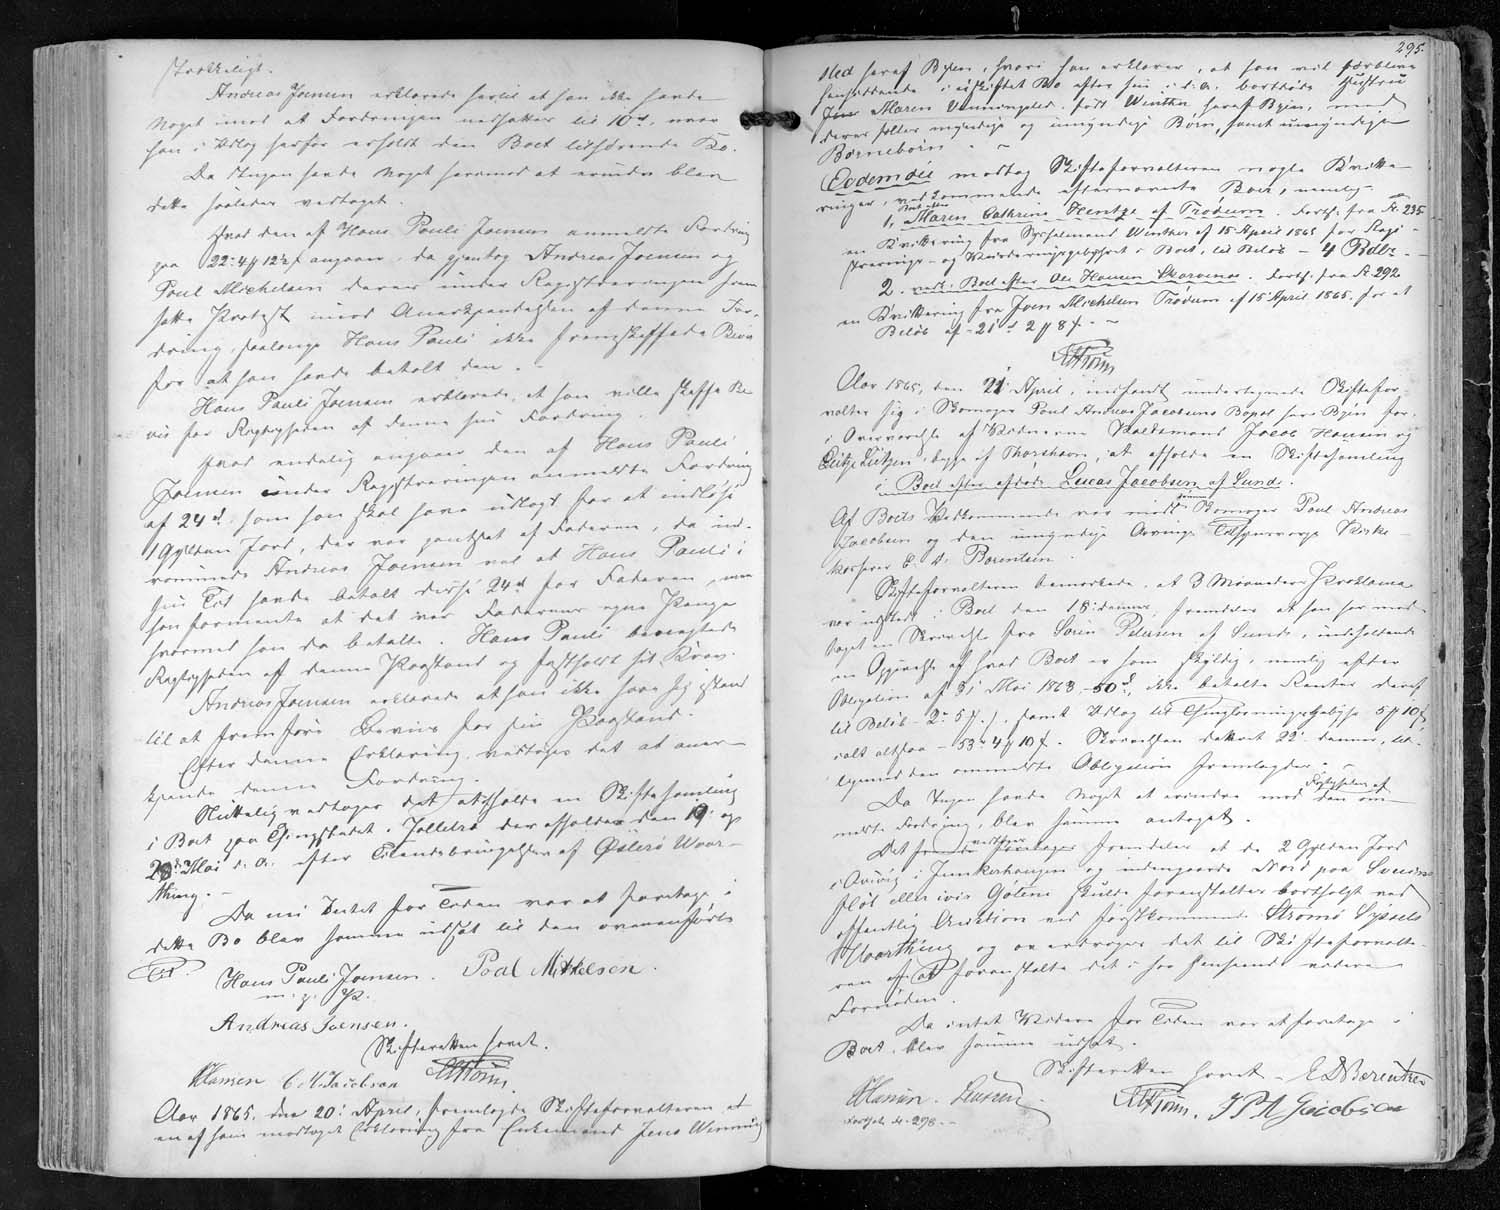 Andreas Joensen erklærede hertil at han ikke havde
Noget imod at Fordringen nedsættes til 10 rd, mod
han i Udlæg herfor erholdt den Boet tilhørende Ko.
Da Ingen havde Noget herimod at erindre blev
dette saaledes vedtaget.
Hvad den af Hans Pauli Joensen anmeldte Fordring
paa 22 - 4 # 12 s angaaer, da gjentog Andreas Joensen og
Poul Michelsen deres under Registreringen frem
satte Protest imod Anerkjendelsen af denne For-
dring, saalænge Hans Pauli ikke fremskaffede Bevis
for at han havde betalt den. -
Hans Pauli Joensen erklærede, at han ville skaffe Be
vis for Rigtigheden af denne sin Fordring.
Hvad endelig angaaer den af Hans Pauli
Joensen under Registreringen anmeldte Fordring
af 24 rd, som han skal have udlagt for at indløse
1 Gylden Jord, der var pantsat af Faderen, da ind-
rømmede Andreas Joensen vel at Hans Pauli i
sin Tid havde betalt disse 24 rd for Faderen, men
han formente at det var Faderens egne Penge
hvormed han da betalte. Hans Pauli benægtede
Rigtigheden af denne Paastand og fastholdt sit Krav.
Andreas Joensen erklærede at han ikke saae sig istand
til at fremføre Beviis for sin Paastand.
Efter denne Erklæring vedtoges det at aner-
kjende denne Fordring.
Sluttelig vedtoges det at holde en Skiftesamling
i Boet paa Thingstedet, der afholdes den 19 og
20 Mai d. A. efter Tilendebringelsen af Østerø Vaar-
thing. -
Da nu Intet for Tiden var at foretage i
dette Bo blev samme udsat til den ovenanførte
Tid.
Hans Pauli Joensen. Poal Mikkelsen.
m. p. P.
Andreas Joensen.
Skifteretten hævet.
Hansen C M Jacobsen
Aar 1865, den 20 April, fremlagde Skifteforvalteren et
en af ham modtaget Erklæring fra Enkemand Jens Wenning
295.
sted heraf Byen, hvori han erklærer, at han vil forblive
hensiddende i uskiftet Bo efter sin i d. A. bortdøde Hustru
Maren Wenningsted, født Winther heraf Byen, med
deres fælles myndige og umyndige Børn, samt umyndige
Børnebørn. -
Eodem die modtog Skifteforvalteren nogle Kvitte
ringer, vedkommende efternævnte Boer, nemlig -
1, Boet efter Maren Cathrine Hentze af Trødum. Forts. fra Fol. 235
en Kvittering fra Sysselmand Winther af 15 April 1865 for Regi-
strerings- og Vurderingsgebyhret i Boet, til Beløb - 4 Rdlr. -
2. ved. Boet efter Ole Hansen Skarvenes. Forts. fra Fol. 292
en Kvittering fra Joen Michelsen Trødum af 15 April 1865 for et
Beløb af - 21 rd 2 # 8 s. -
Aar 1865, den 21 April, indfandt undertegnede Skiftefor-
valter sig i Skomager Poul Andreas Jacobsens Bopæl her i Byen for
i Overværelse af Vidnerne Jacob Hansen og
, begge af Thorshavn, at afholde en Skiftesamling
i Boet efter afdøde Lucas Jacobsen af Sund.
Af Boets Vedkommende var mødt Skomager Poul Andreas
Jacobsen og den umyndige Arvings Tilsynsværge Kirke-
kasserer E. D. Bærentsen.
Skifteforvalteren bemærkede, at 3 Maaneders Proklama
var udstedt i Boet den 18 dennes, fremdeles at han har mod-
taget en Skrivelse fra Søren Petersen af Sund, indeholdende
en Opgivelse af hvad Boet er ham skyldig, nemlig efter
Obligation af 31 Mai 1863 - 50 rd, ikke betalte Renter deraf
til Beløb - 2 - 5 #, samt Udlæg til Thinglæsningsgebyhr 5 # 10 s
ialt altsaa - 53 - 4 # 10 s. Skrivelsen dateret 22 dennes, til-
ligemed den anmeldte Obligation fremlagdes.
Da Ingen havde Noget at erindre mod Rigtigheden af den an-
meldte Fordring, blev samme antaget.
Det vedtoges fremdeles at de 2 Gylden Jord
i Arvig i Junkerhaugen og indengaards Nord paa
skulde foranstaltes bortsolgt ved
offentlig Auktion ved førstkommende Strømø Syssels
Vaarthing og overdroges det til Skifteforvalte-
ren at foranstalte det i saa Henseende videre
Fornødne.
Da intet Videre for Tiden var at foretage i
Boet, blev samme udsat.
Skifteretten hævet - E D Bærentsen
Hansen. P A Jacobsen
Fortsat fol. 298. -